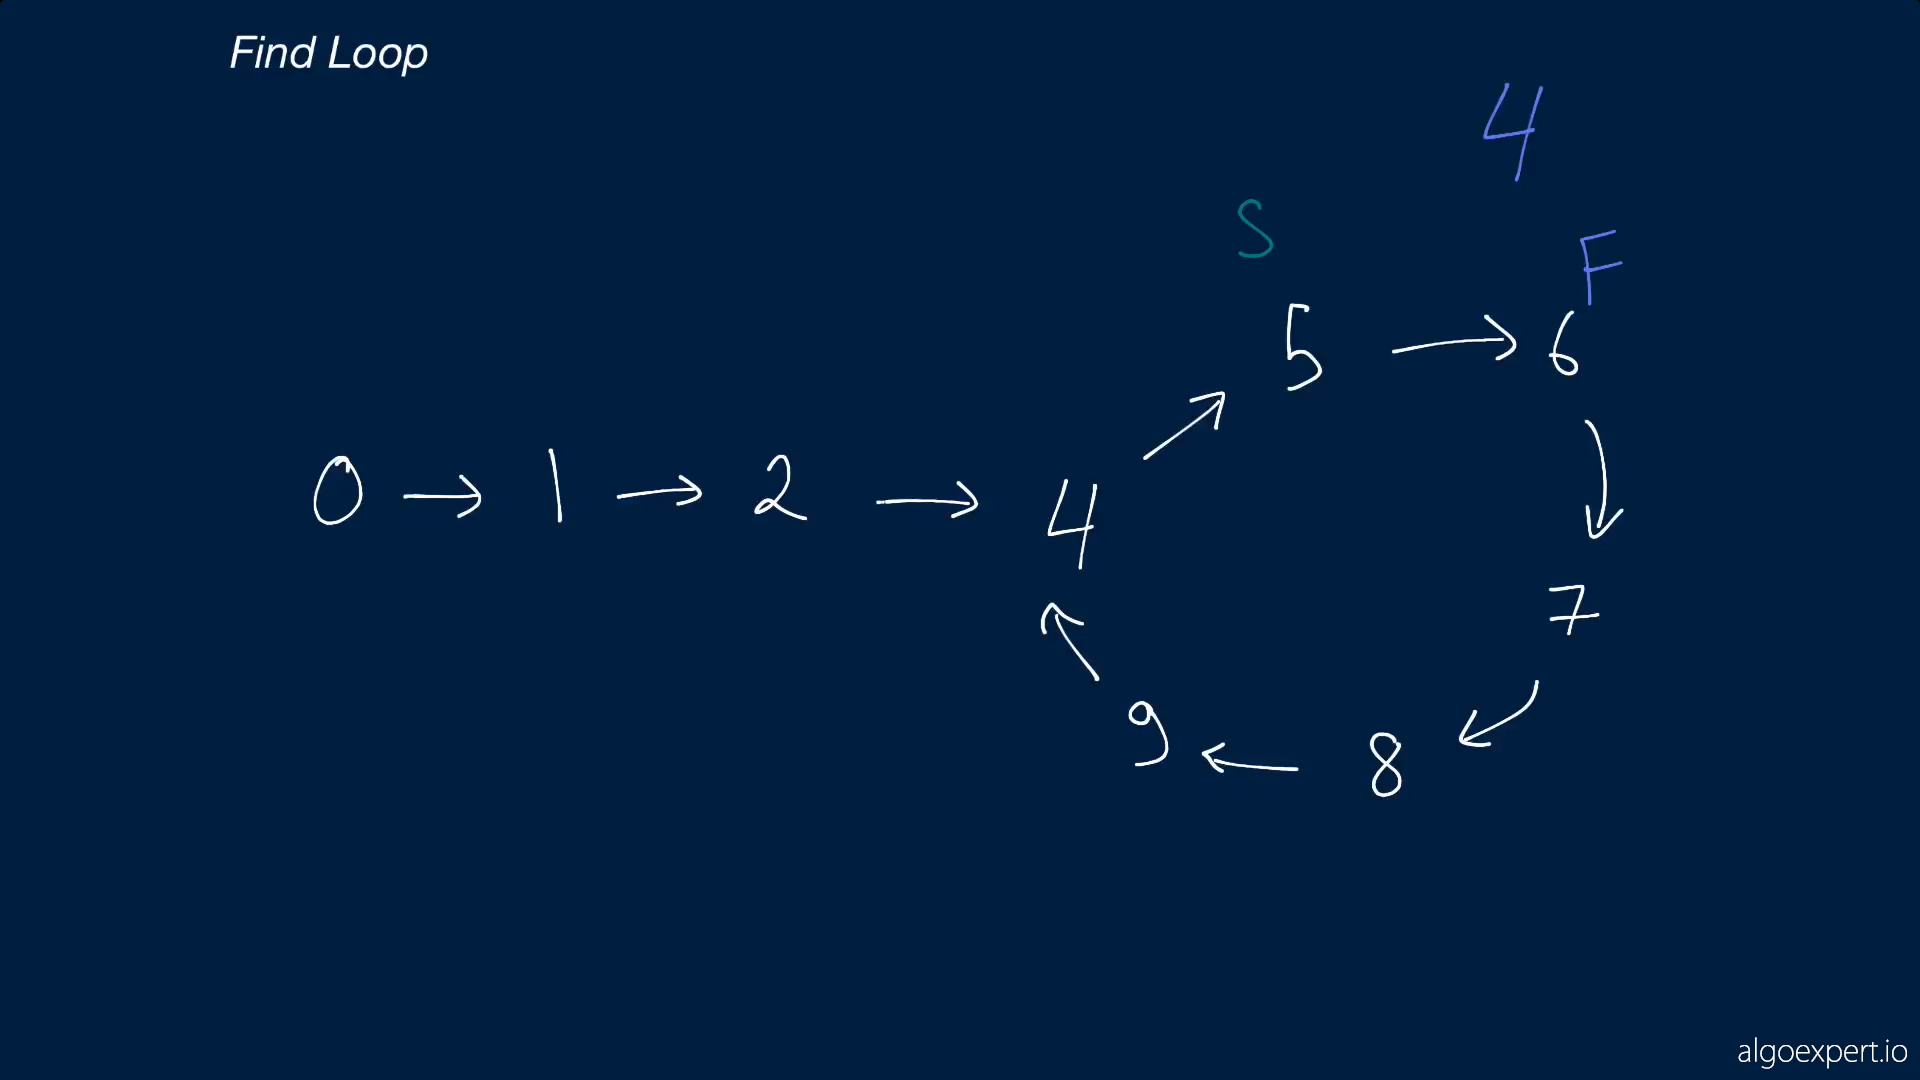 Find Loop
4
S
F
5 → 6
0 → 1 → 2 → 4
7
9 ← 8
algoexpert.io